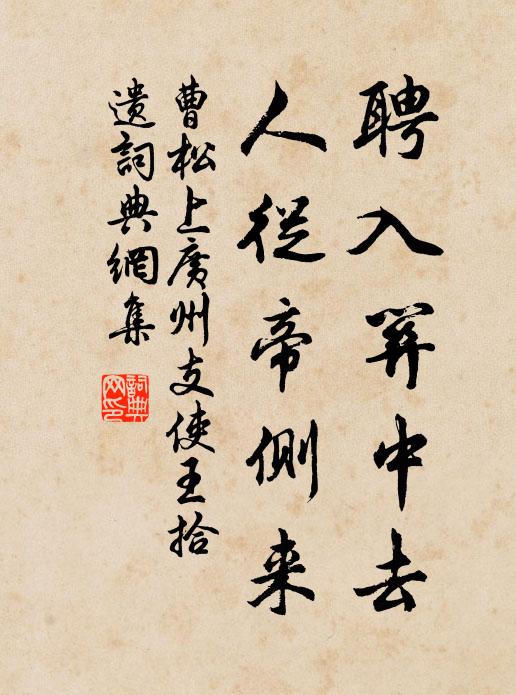 聘入關中去
人從帝側来
曹松上廣州支使王拾
遺詞典網集
詞典網印